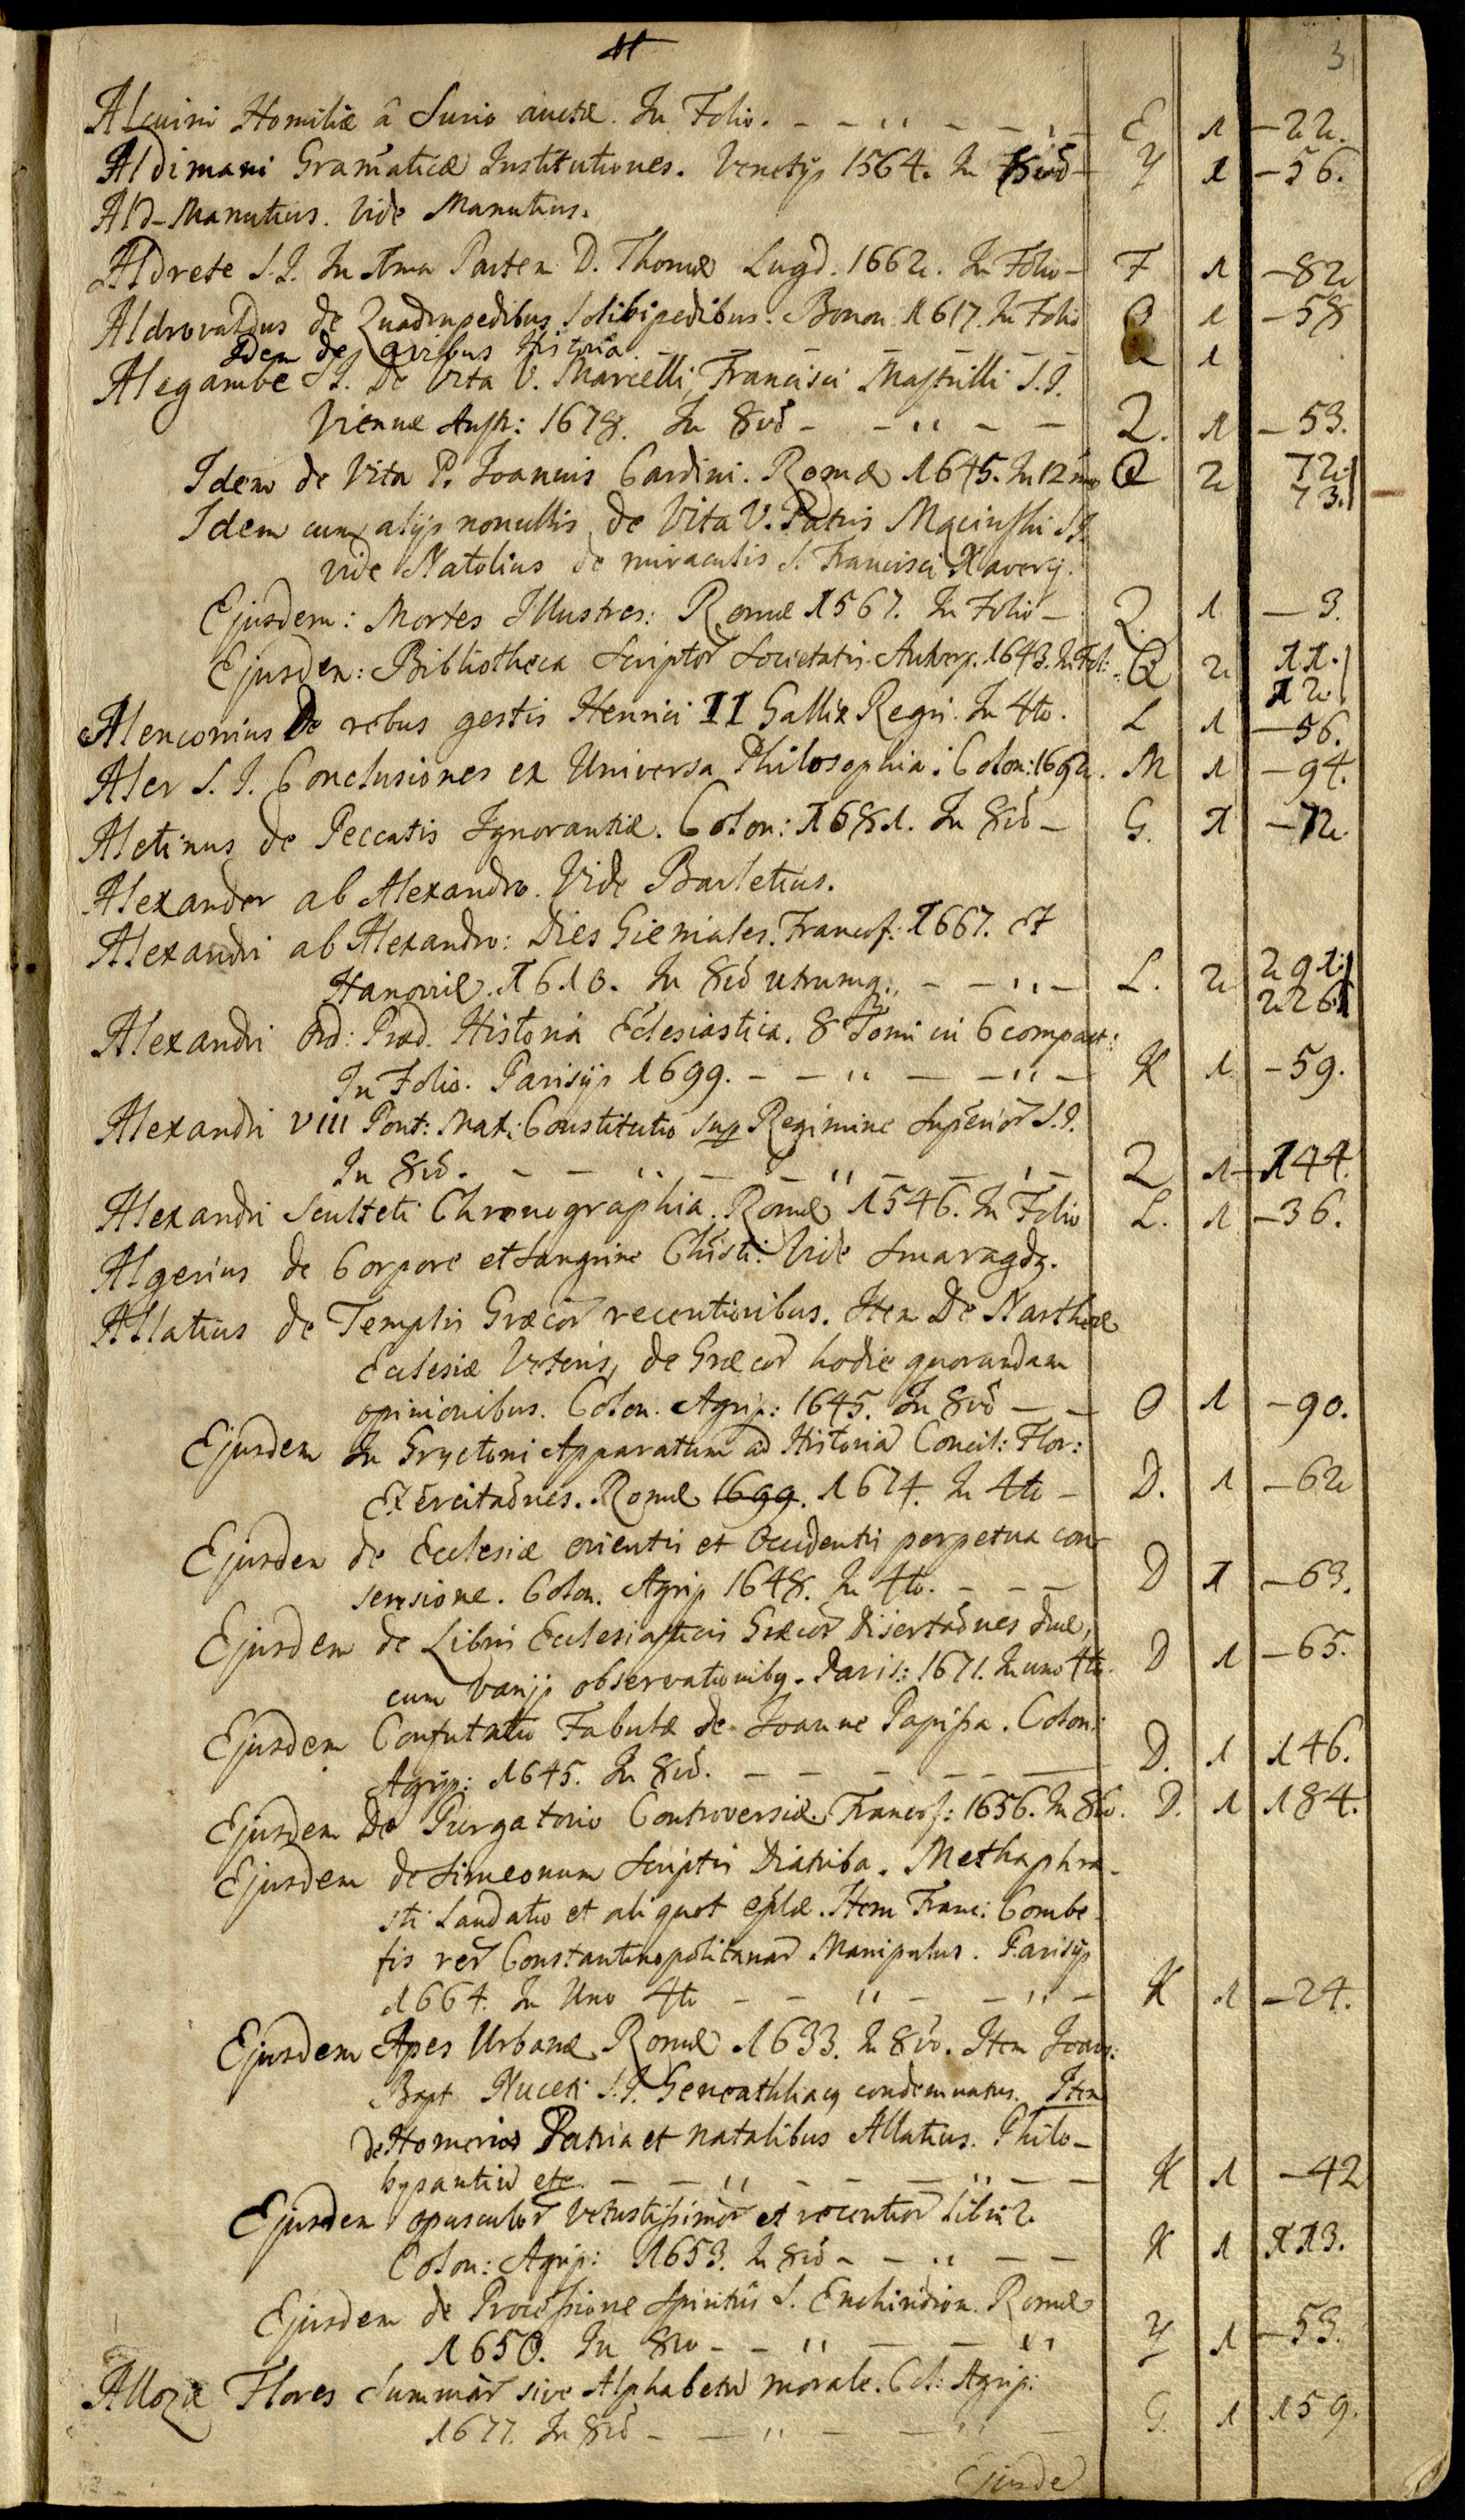 3
Alcuini Homiliæ â Surio auctæ. In Folio. E 1 –22.
Aldimani Gramaticæ Institutiones. Venetijs 1564. In 8vo Y 1 –56.
Ald-Manutius. Vide Manutius.
Aldrete S.J. In 1ma Partem D. Thomæ Lugd. 1662. In Folio – F 1 –82
Aldrovandus de Quadrupedibus Solibipedibus. Bonon 1617. In Folio 1 –58
Idem de avibus Historia 1
Alegambe S.J. De Vita V. Marcelli Francisci Mastrilli S.J.
Viennæ Austr: 1678. In 8vo – Q. 1 –53.
Idem de Vita P. Joannis Cardini. Romæ 1645. In 12mo Q 2 72
73.
Idem cum alijs nonullis de Vita V. Patris
vide Natolius de miraculis S. Francisci Xaverij.
Ejusdem: Mortes Illustres: Romæ 1567. In Folio – Q. 1 –3.
Ejusdem: Bibliotheca Scriptor Societatis. Antverp. 1643. In Fol: Q 2 11.
12
Alenconius De rebus gestis Henrici II Galliæ Regis. In 4to. L 1 –56.
Aler S.J. Conclusiones ex Universa Philosophia: Colon: 1692. M 1 –94.
Aletinus de Peccatis Ignorantiæ. Colon: 1681. In 8vo – G. 1 –72
Alexander ab Alexandro. Vide Barletius.
Alexandri ab Alexandro: Dies Gieniales. Francof: 1667. et
Hanoviæ. 1610. In 8vo utrumq. L. 2 291.
226
Alexandri Ord: Præd. Historia Eclesiastica. 8 Tomi in 6 compact:
In Folio. Parisijs 1699. K 1 –59.
Alexandri VIII Pont: Max: Constitutio sup Regimine Superior S.J.
In 8vo. Q 1 –144.
Alexandri Sculteti Chronographia. Romæ 1546. In Folio L. 1 –36.
Algerius de Corpore et Sangvine Christi: Vide Smaragdg.
Allatius de Templis Græcor recentioribus. Item De Narthece
Eclesiæ Veteris, de Græcor hodie quorundam
opinionibus. Colon. Agrip: 1645. In 8vo O 1 –90.
Ejusdem In Gryctoni Apparatum ad Historia Concil: Flor:
Exercitaoes. Romæ 1699. 1674. In 4to – D. 1 –62
Ejusdem de Ecclesiæ orientis et Occidentis perpetua con
sensione. Colon. Agrip 1648. In 4to. D 1 –63.
Ejusdem de Libris Ecclesiasticis Græcor Disertaões duæ,
cum Varijs observationibg. Paris: 1671. In uno 4to. D 1 –65.
Ejusdem Confutatio Fabulæ de Joanne Papissa. Colon:
Agrip: 1645. In 8vo. D. 1 146.
Ejusdem De Purgatorio Controversiæ. Francof: 1656. In 8vo. D. 1 184.
Ejusdem de Simeonum Scriptis Diatriba. Methaphra-
sti Laudatio et aliquot eplæ. Item Franc: Combe-
fis rer Constantinopolitanar Manipulus. Parisijs
1664. In Uno 4to K 1 –24.
Ejusdem Apes Urbanæ Romæ 1633. In 8vo. Item Joan:
Bapt. Nuceti S.J. condemnatus. Item
de Homerios Patria et natalibus Allatius. Philo-
bysantiu etc. K 1 –42
Ejusdem opusculor Vetustissimor et recentior Libri 2
Colon: Agrip: 1653. In 8vo K 1 113.
Ejusdem de Processione Spiritûs S. Enchiridion. Romæ
1650. In 8vo Y 1 –53.
Allozæ Flores Summar sive Alphabetu morale. Col: Agrip:
1677. In 8vo G. 1 159.
Ejusde